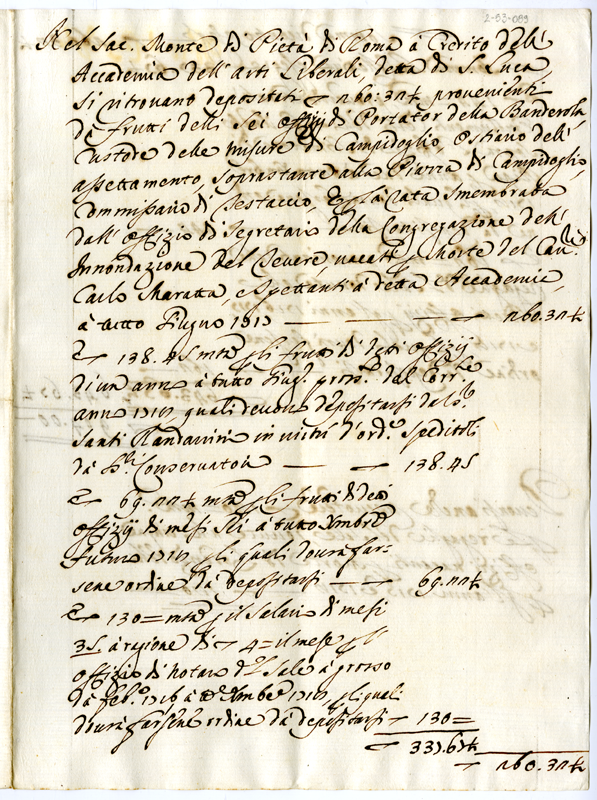 2-53-089
Nel Sac. Monte di Pietà di Roma à Credito dell'
Accademia dell'arti Liberali, detta di S. Luca
si ritrovano depositati provenienti
da frutti delli sei offizij di Portator della Banderola,
Custore delle misure di Campidoglio, Ostiario dell'
assettamento, soprastante alla Piazza di Campidoglio,
Commissario di Testaccio, smembrata
dall'Offizio di Segretario della Congregazione dell'
Innondazione del Tevere, vacati morte del Cav.re
Carlo Maratta, e spettanti à detta Accademia,
à tutto Giugno
138.45 gli frutti di detti offizij
di un anno à tutto Giug.
anno quali devon depositarsi dal S.
Santi Randanini in virtù d'ord. spediteli
da Conservatori 138.45
69. gli frutti di detti
offizij di mesi sei à tutto Xmbre
futuro gli quali dourà far-
sene ordine da depositarsi 69.
130 = il salario di mesi
à ragione di 4 = il mese
offizio di notaro Sale à grosso
da Feb. 1716 à Xmbre gli quali
dourà farsene ordine da depositarsi 130 =